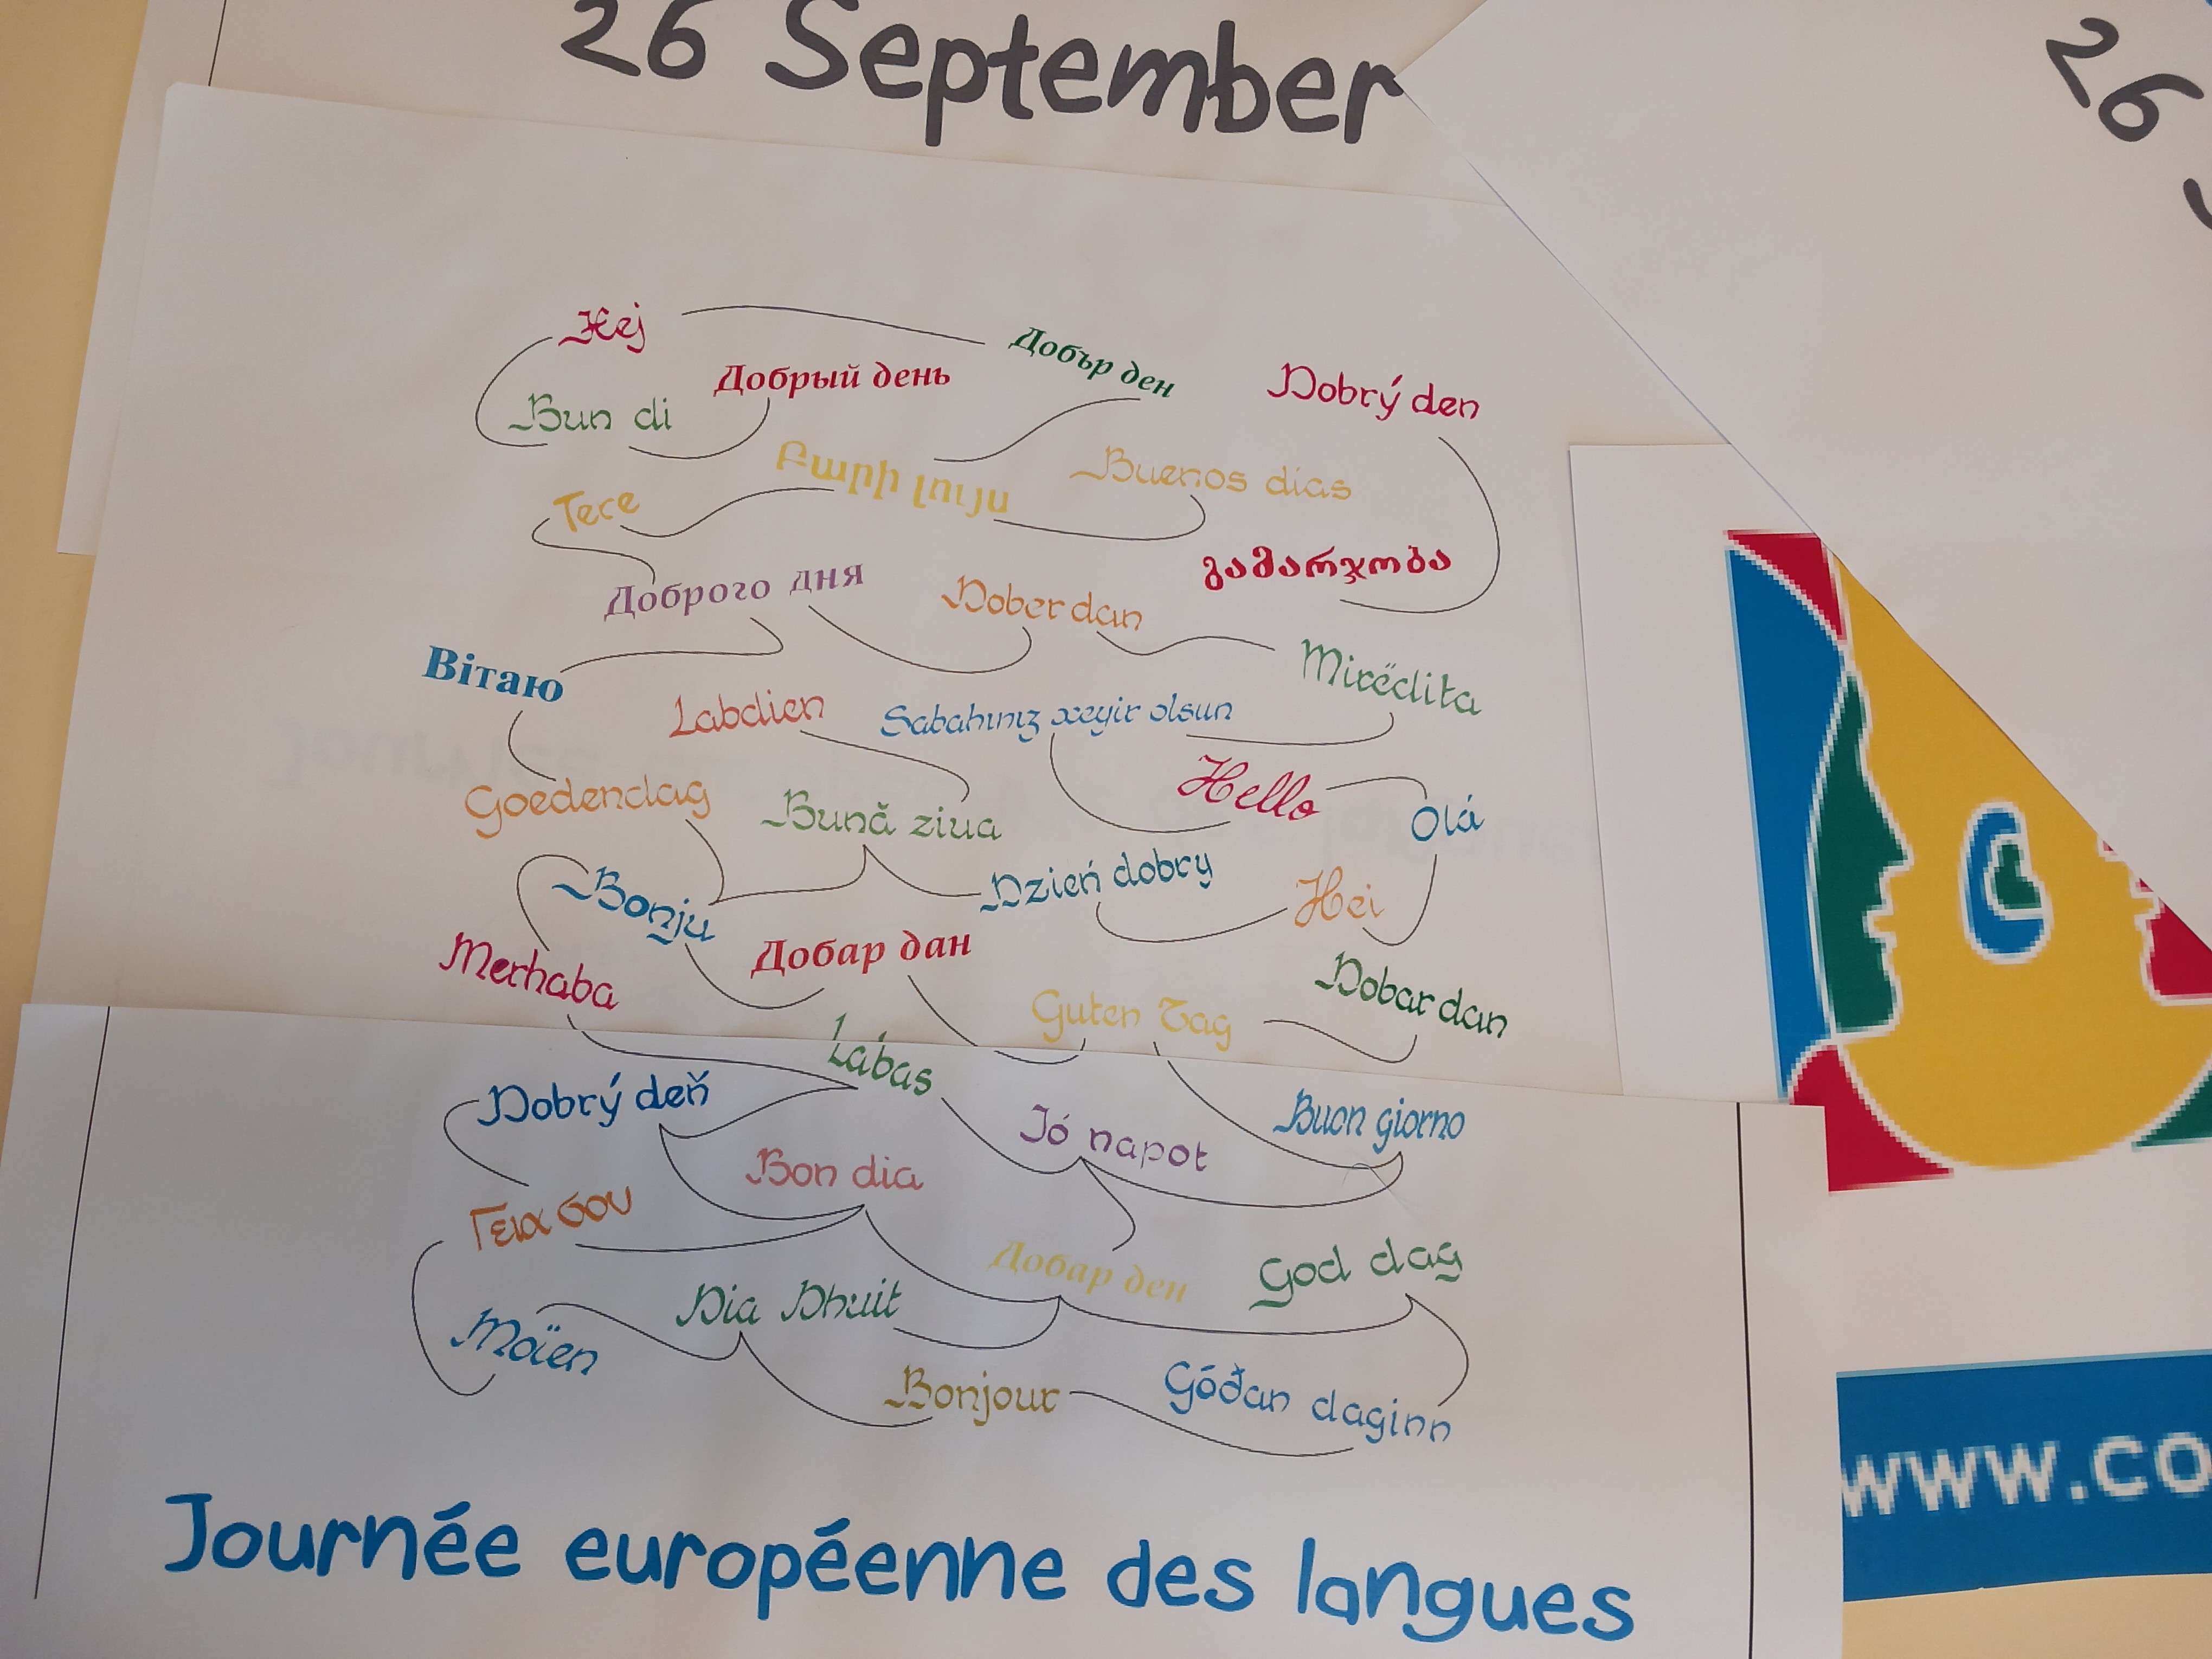 26 September
26
Hej
Добър ден
Добрый день
Dobrý den
Bun di
Բարի լույս
Buenos dias
Tere
გამარჯობა
Доброго дня
Dober dan
Вiтаю
Mirëdita
Labdien
Sabahınız xeyir olsun
Hello
Goedendag
Bună ziua
Olá
Bonju
Dzień dobry
Hei
Merhaba
Добар дан
Guten Tag
Dobar dan
Labas
Dobrý deň
Jó napot
Buon giorno
Bon dia
Γεια σου
Добар ден
God dag
Dia Dhuit
Moïen
Bonjour
Góðan daginn
www.co
Journée européenne des langues